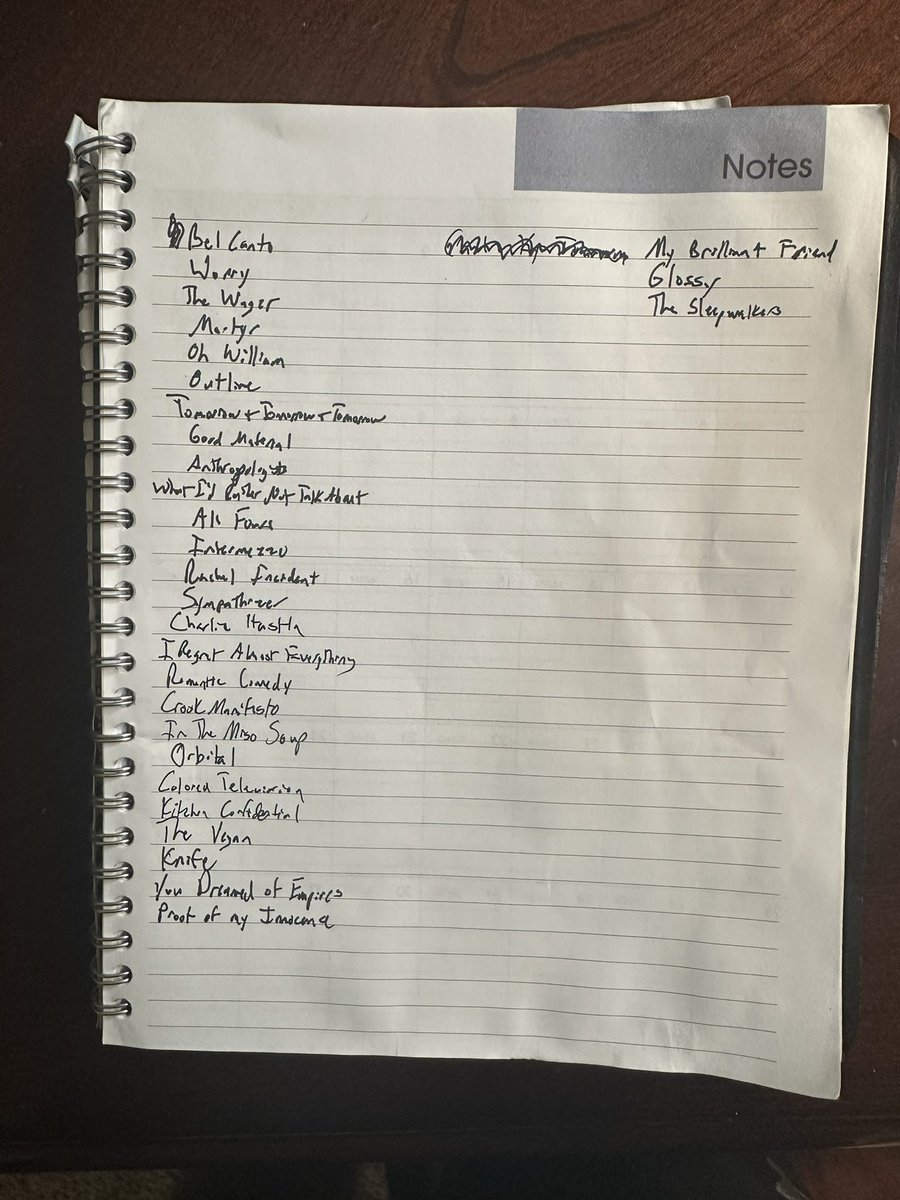 Notes
Bel Canto
Worry
The Wager
Martyr
Oh William
Outline
Tomorrow + Tomorrow + Tomorrow
Good Material
Anthropologists
What I'd Rather Not Talk About
All Fours
Intermezzo
Rachel Incident
Sympathizer
Charlie Hustle
I Regret Almost Everything
Romantic Comedy
Crook Manifesto
In The Miso Soup
Orbital
Colored Television
Kitchen Confidential
The Vegan
Knife
You Dreamed of Empires
Proof of my Innocence
My Brilliant Friend
Glossy
The Sleepwalkers